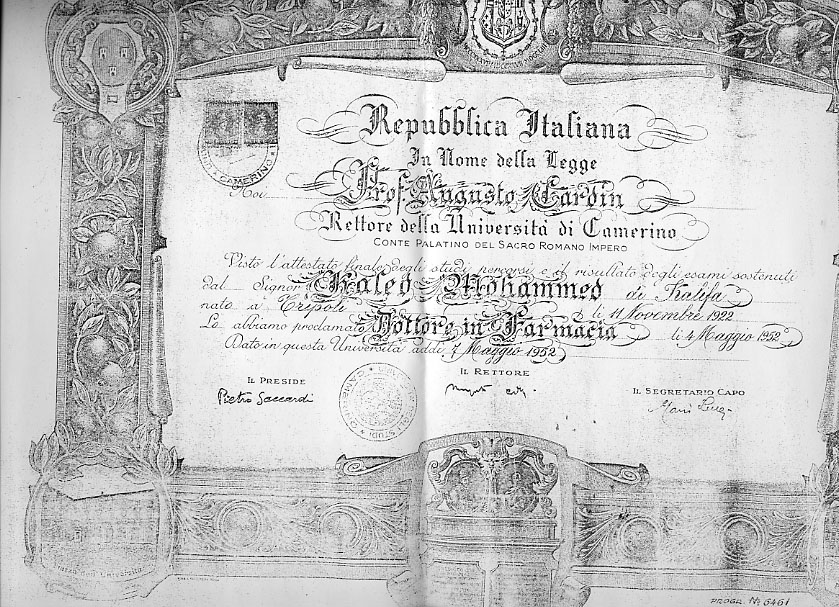 Repubblica Italiana
In Nome della Legge
Noi Prof. Augusto Cardin
Rettore della Università di Camerino
CONTE PALATINO DEL SACRO ROMANO IMPERO
Visto l'attestato finale degli studi percorsi e il risultato degli esami sostenuti
dal Signor Kaled Mohammed di Kalifa
nato a Tripoli li 11 Novembre 1922
Lo abbiamo proclamato Dottore in Farmacia li 4 Maggio 1952
Dato in questa Università addì 7 Maggio 1952
IL PRESIDE
IL RETTORE
IL SEGRETARIO CAPO
Pietro Saccardi
CAMERINO
PROGR. No 6461